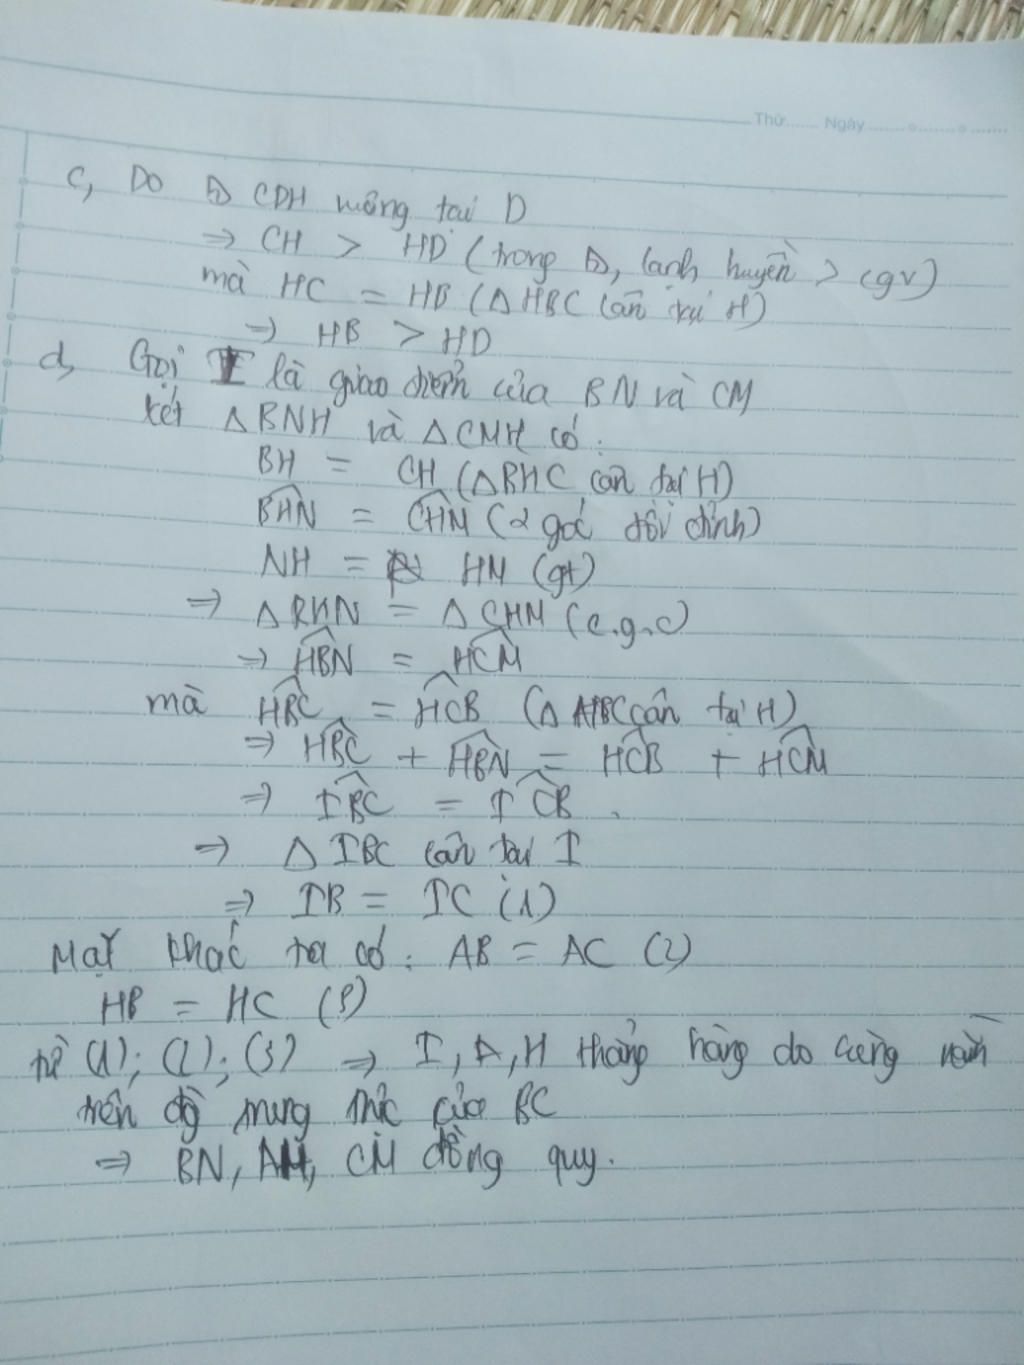 Thứ...... Ngày ........ .......... .......
c, Do ⊿ CDH vuông tại D
⇒ CH > HD (trong ⊿, cạnh huyền > cgv)
mà HC = HB (△ HBC cân tại H)
⇒ HB > HD
d, Gọi I là giao điểm của BN và CM
xét △ BNH và △ CMH có:
BH = CH (△ BHC cân tại H)
BHN = CHM (2 góc đối đỉnh)
NH = HM (gt)
⇒ △ BHN = △ CHM (c.g.c)
⇒ HBN = HCM
mà HBC = HCB (△ HBC cân tại H)
⇒ HBC + HBN = HCB + HCM
⇒ IBC = ICB.
⇒ △ IBC cân tại I
⇒ IB = IC (1)
Mặt khác ta có: AB = AC (2)
HB = HC (3)
từ (1); (2); (3) ⇒ I, A, H thẳng hàng do cùng nằm
trên đg trung trực của BC
⇒ BN, AH, CM đồng quy.